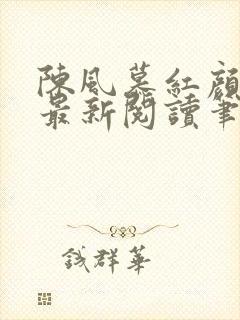 陳風墓紅顏
最新閱讀筆
錢群華